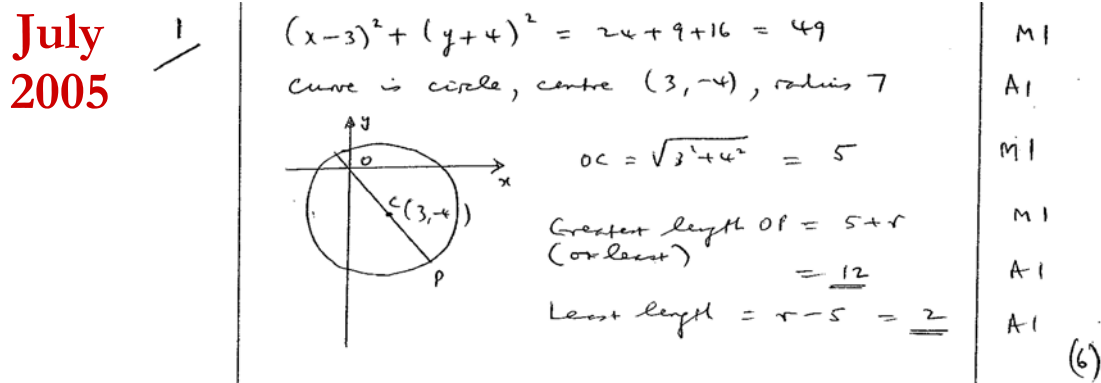 July
2005
1
(x-3)² + (y+4)² = 24+9+16 = 49 M1
Curve is circle, centre (3,-4), radius 7 A1
y
O
x
C(3,-4)
P
OC = √3²+4² = 5 M1
Greatest length OP = 5+r M1
(or least)
= 12 A1
Least length = r-5 = 2 A1
(6)